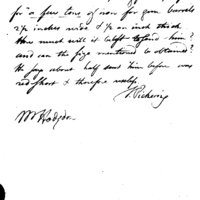 for a few tons of iron for gun barrels
2½ inches wide & ½ an inch thick
How much will it be him?
and can the size mentioned be obtained?
He says about half sent him before was
red short & therefore useless.
T Pickering
Mr Hodgdon